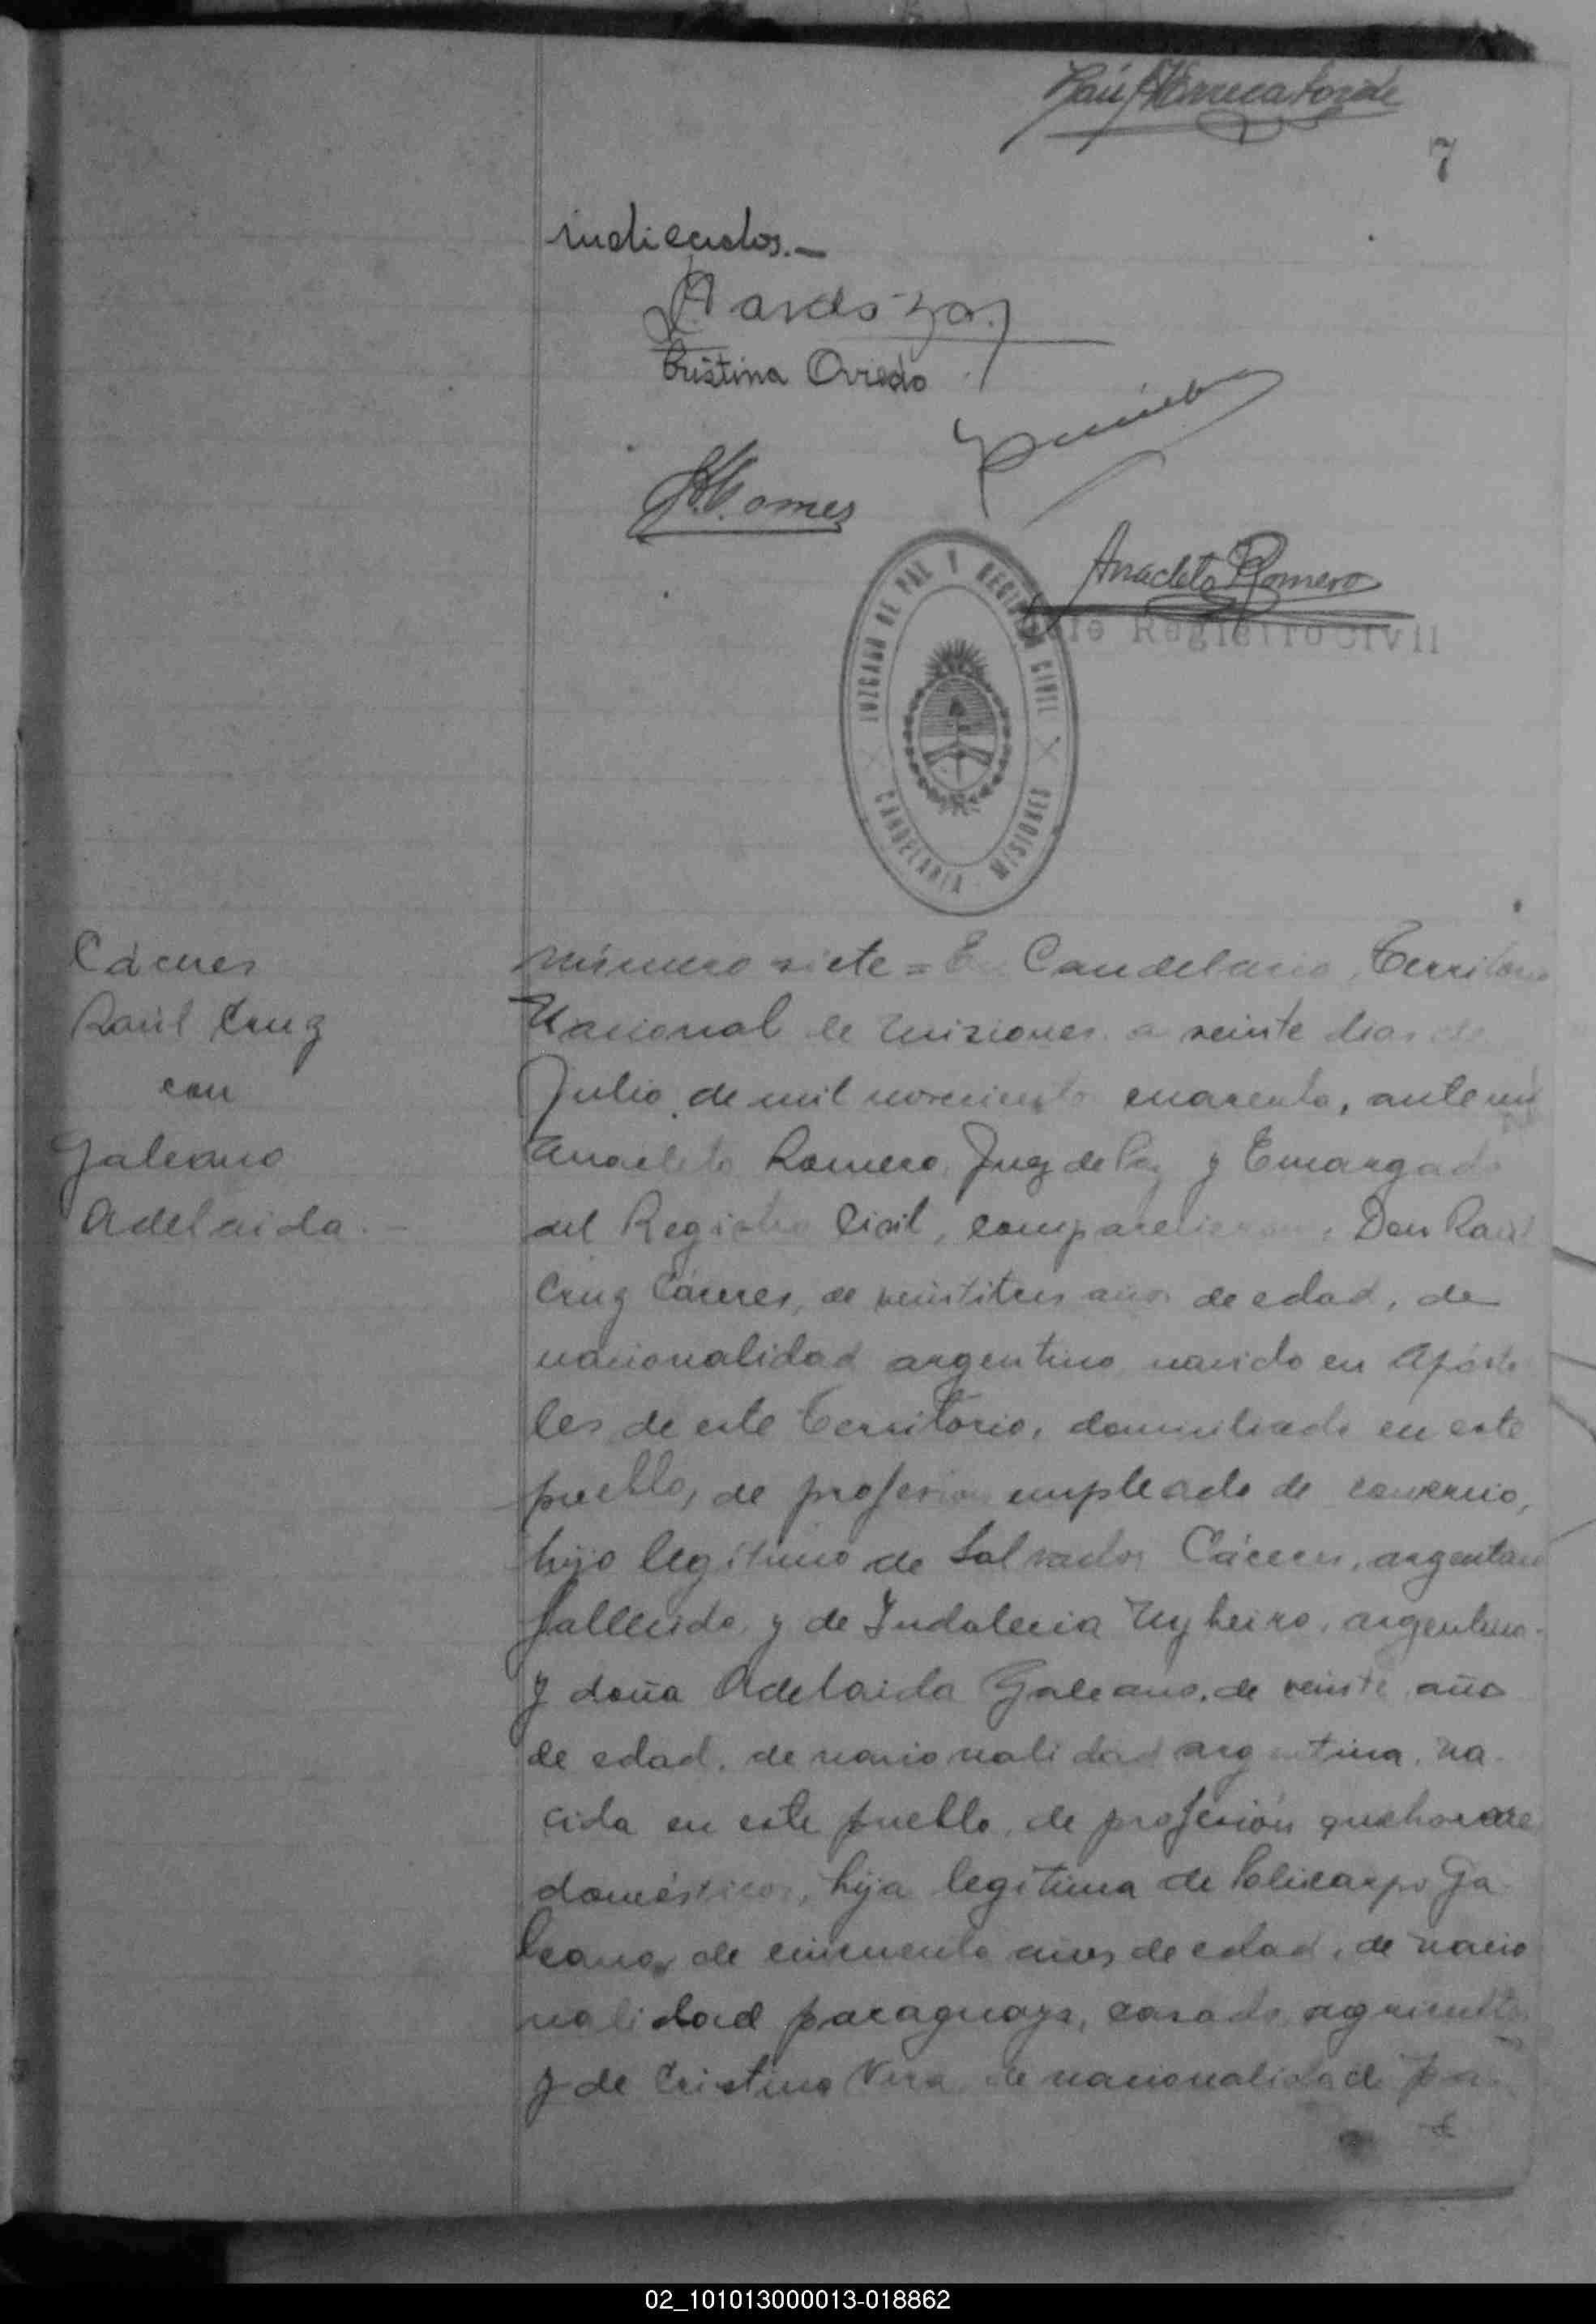 7
indicados.—
Cristina Oviedo
Gomes
Anacleto Romero
Registro Civil
JUZGADO DE PAZ Y REGISTRO CIVIL
CANDELARIA MISIONES
Cáceres
Raúl Cruz
con
Galeano
Adelaida.—
Número siete = En Candelaria, Territorio
Nacional de Misiones a veinte dias de
Julio de mil novecientos cuarenta, ante mi
Anacleto Romero, Juez de Paz y Encargado
del Registro Civil, comparecieron: Don Raúl
Cruz Cáceres, de veintitres años de edad, de
nacionalidad argentino, nacido en Apósto
les de este Territorio, domiciliado en este
pueblo, de profesion empleado de comercio,
hijo legítimo de Salvador Cáceres, argentino
fallecido y de Indalecia, argentina.
y doña Adelaida Galeano, de veinte años
de edad, de nacionalidad argentina, na-
cida en este pueblo, de profesión quehaceres
domésticos, hija legítima de Policarpo Ga
leano, de cincuenta años de edad, de nacio
nalidad paraguaya, casado, agricultor
y de Cristina Vera, de nacionalidad pa-
02_101013000013-018862